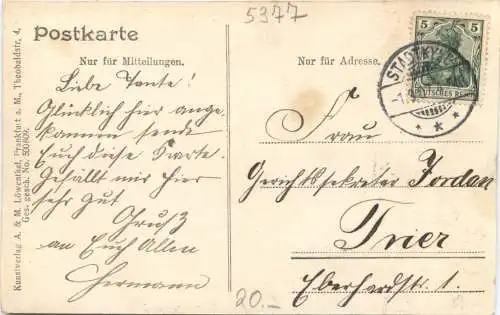 5377
Postkarte
Nur für Mitteilungen.
Nur für Adresse.
5 5
DEUTSCHES REICH
STADTKYLL
Liebe Tante!
Glücklich hier ange
kommen sende
Euch diese Karte.
Gefällt mir hier
sehr gut
Gruß
an Euch Allen
Hermann
Frau
Gerichtssekretär Jordan
Trier
Eberhardstr. 1.
20.-
Kunstverlag A. & M. Löwenthal, Frankfurt a. M., Theobaldstr. 4.
Ges. gesch. No. 500/809.